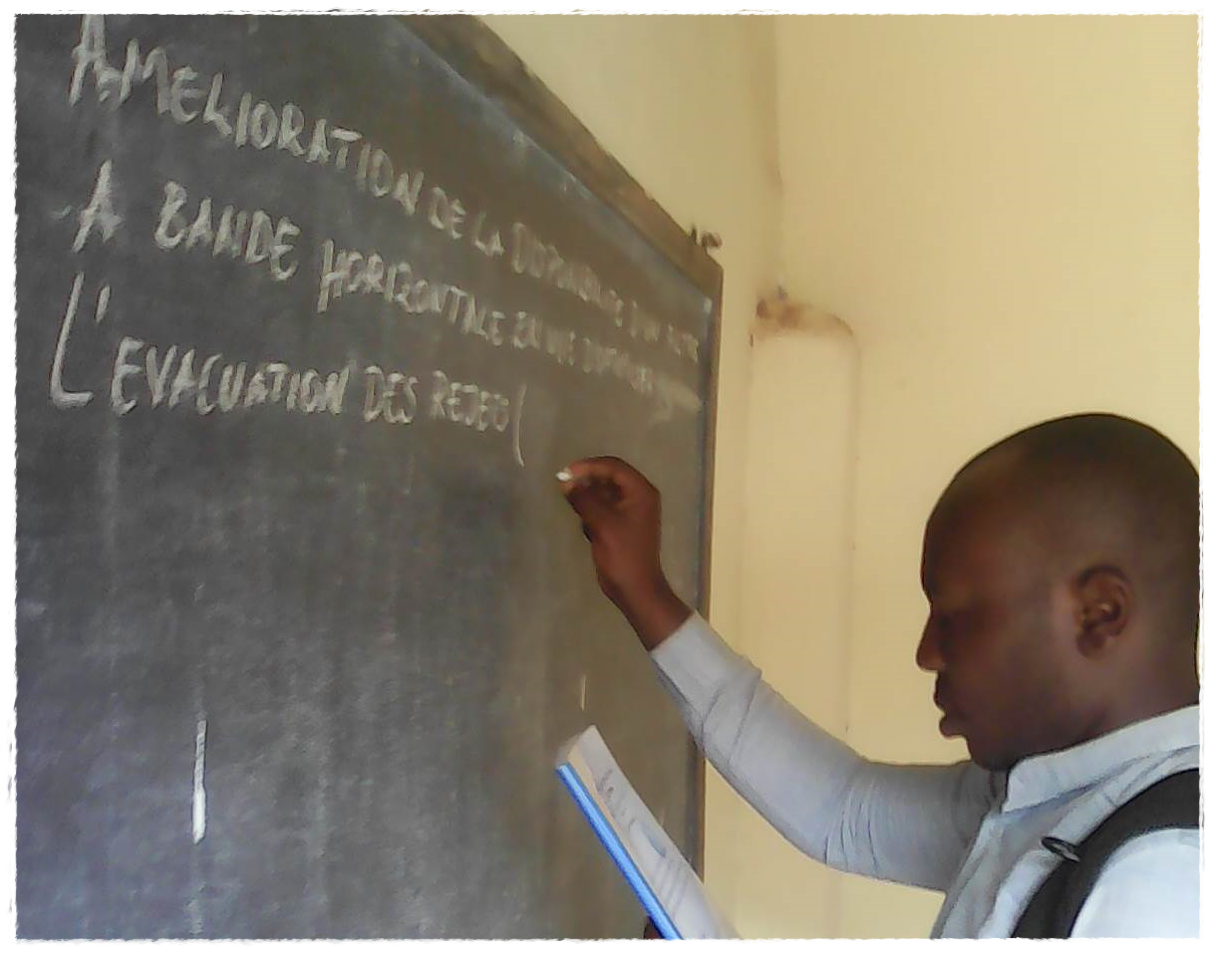 AMELIORATION DE LA D'UN FILTRE
A BANDE HORIZONTALE EN VUE D'OPTIMISER
L'EVACUATION DES REJETS (